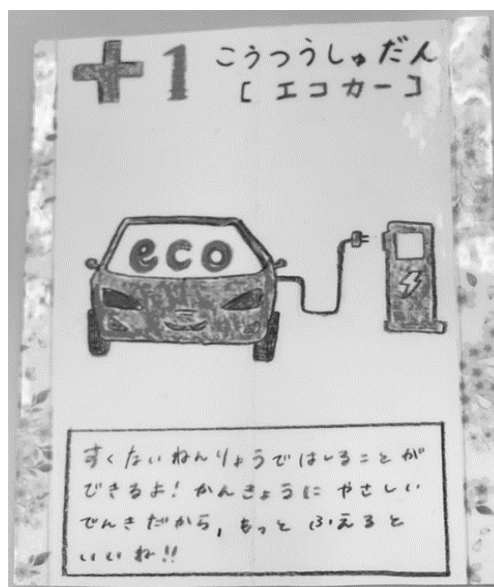 +1 こうつうしゅだん
[エコカー]
eco
すくないねんりょうではしることが
できるよ! かんきょうに やさしい
でんきだから, もっと ふえると
いいね!!